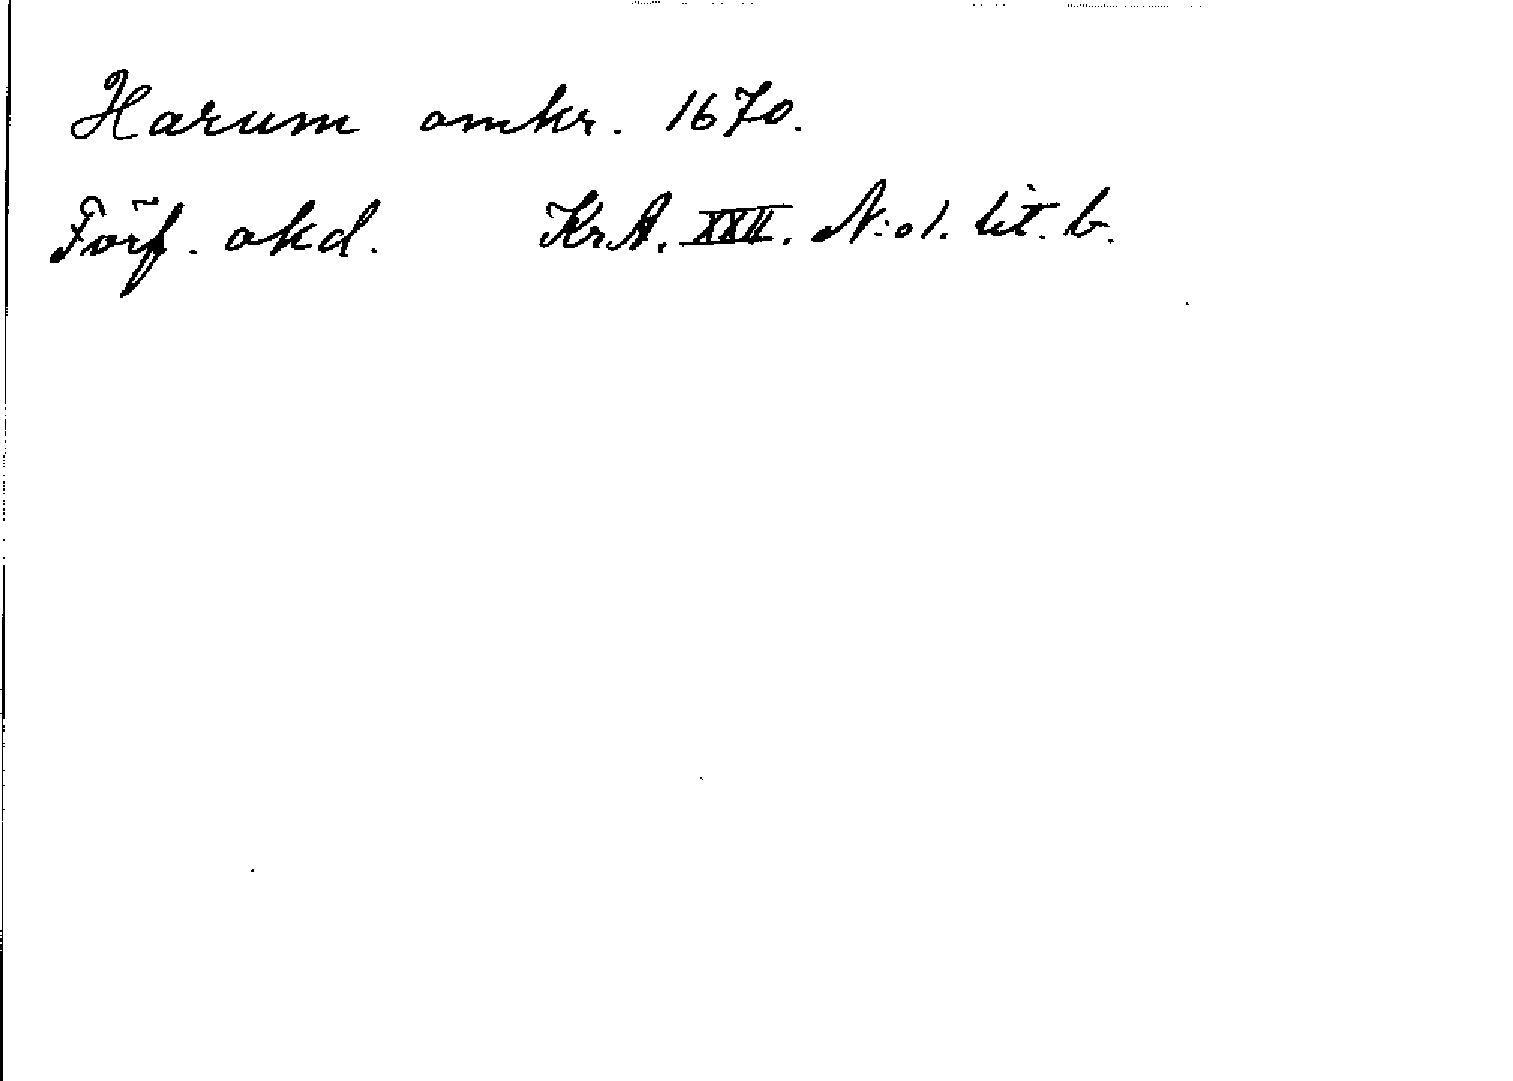 Harum omkr. 1670.
Förf. okd. KrA. XXII. N:o 1. lit. b.